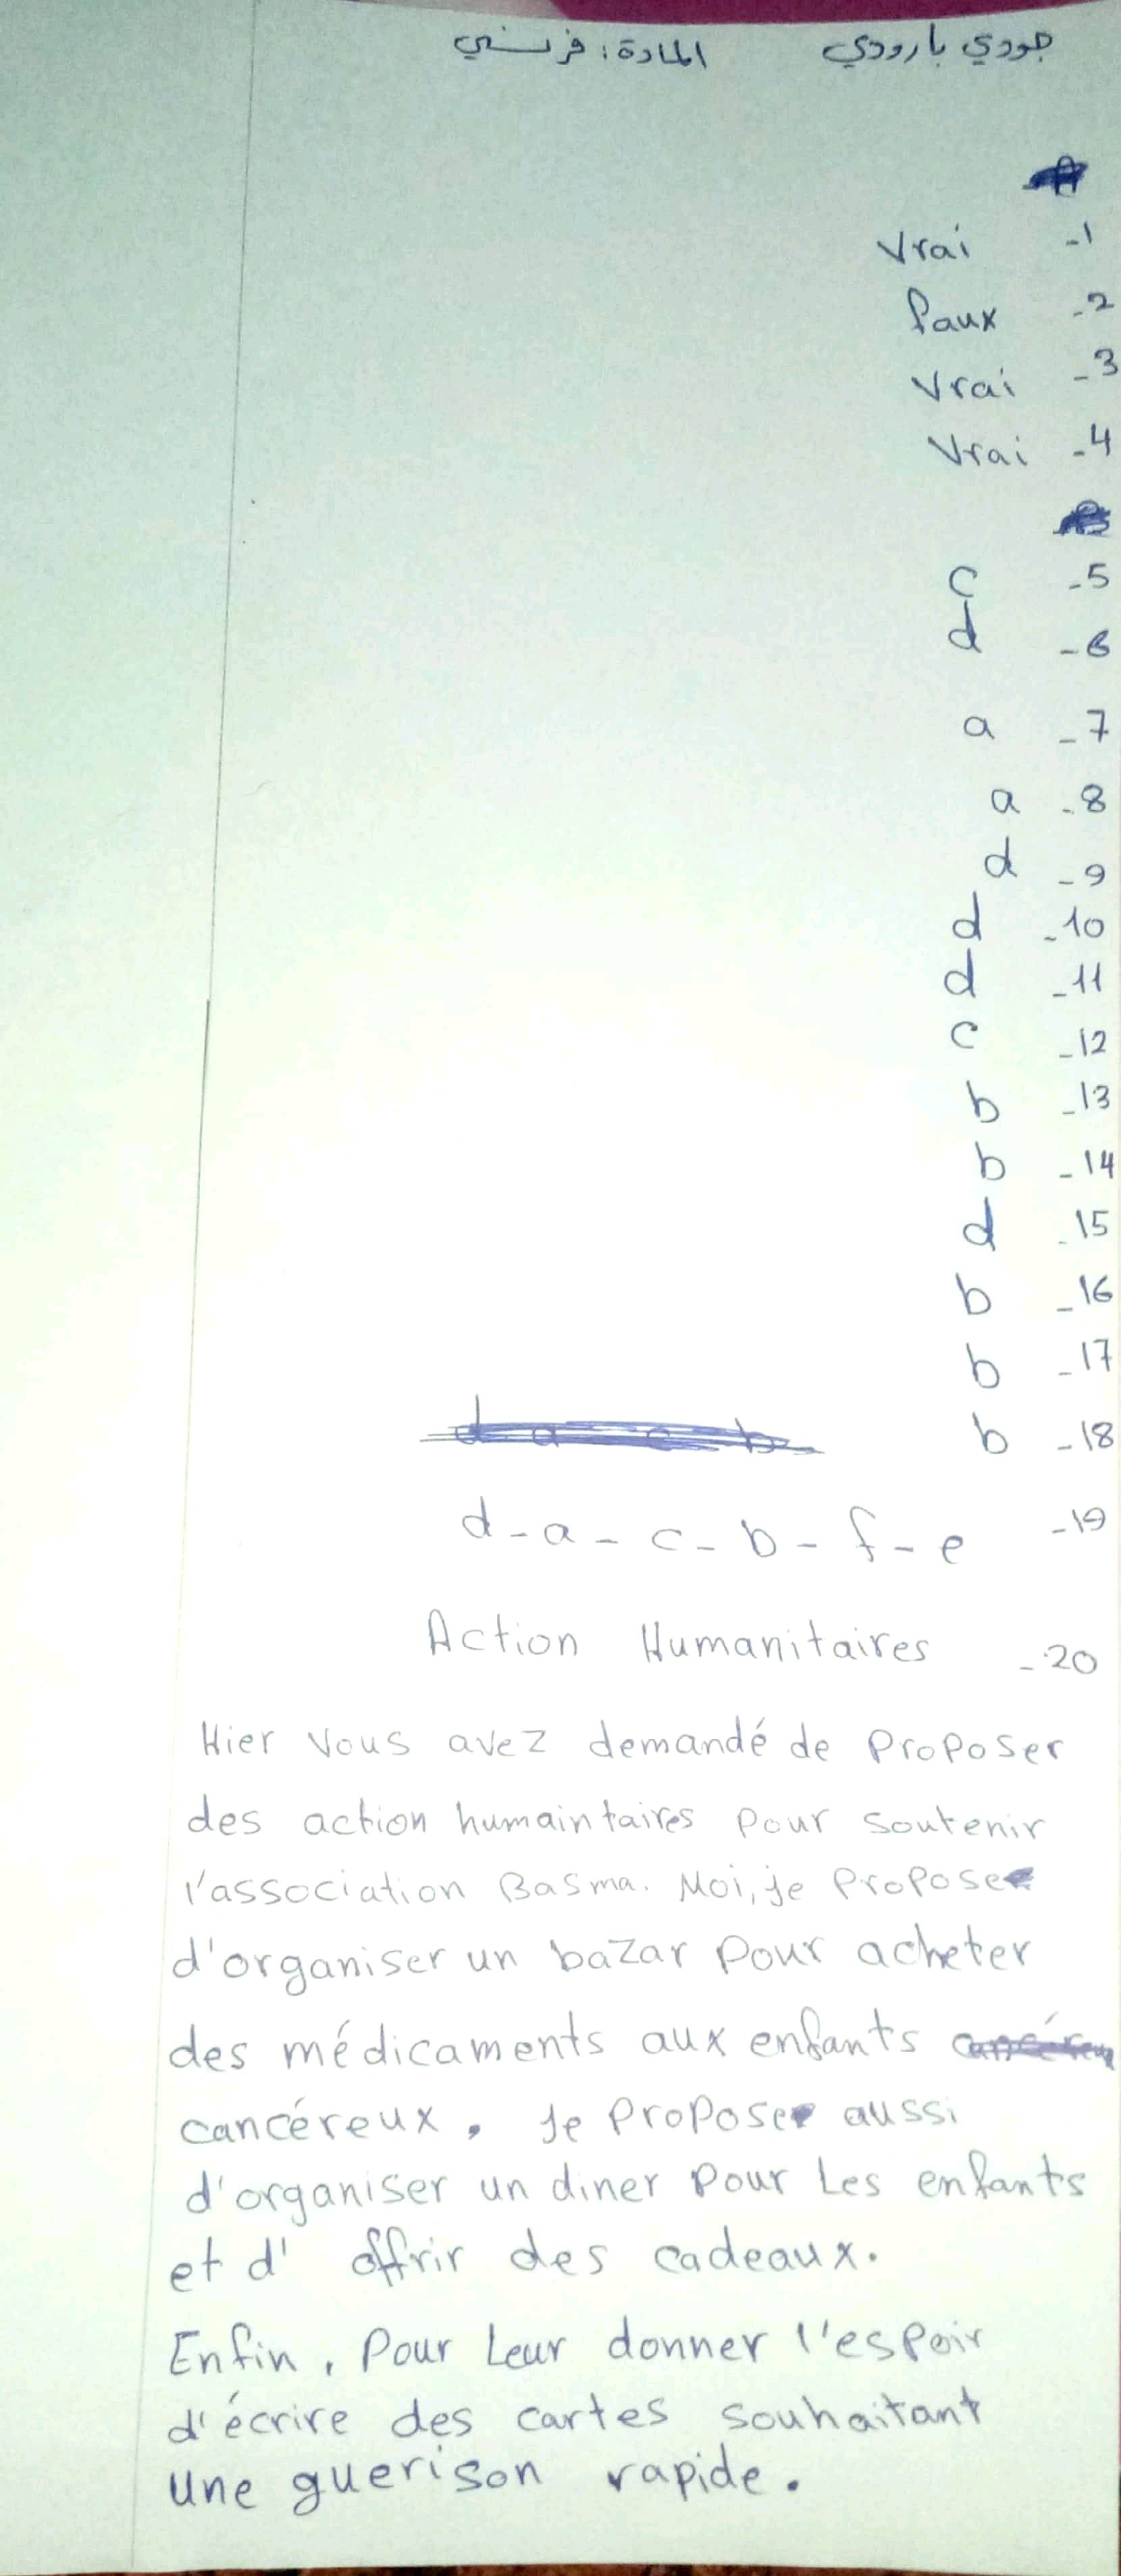 جودي بارودي المادة: فرنسي
A
1- Vrai
2- faux
3- Vrai
4- Vrai
B
5- c
6- d
7- a
8- a
9- d
10- d
11- d
12- c
13- b
14- b
15- d
16- b
17- b
18- b
d a c b
19- d - a - c - b - f - e
20- Action Humanitaires
Hier vous avez demandé de proposer
des action humaintaires pour soutenir
l'association Basma. Moi, je propose
d'organiser un bazar pour acheter
des médicaments aux enfants
cancéreux. Je propose aussi
d'organiser un diner pour les enfants
et d' offrir des cadeaux.
Enfin, pour leur donner l'espoir
d'écrire des cartes souhaitant
une guerison rapide.